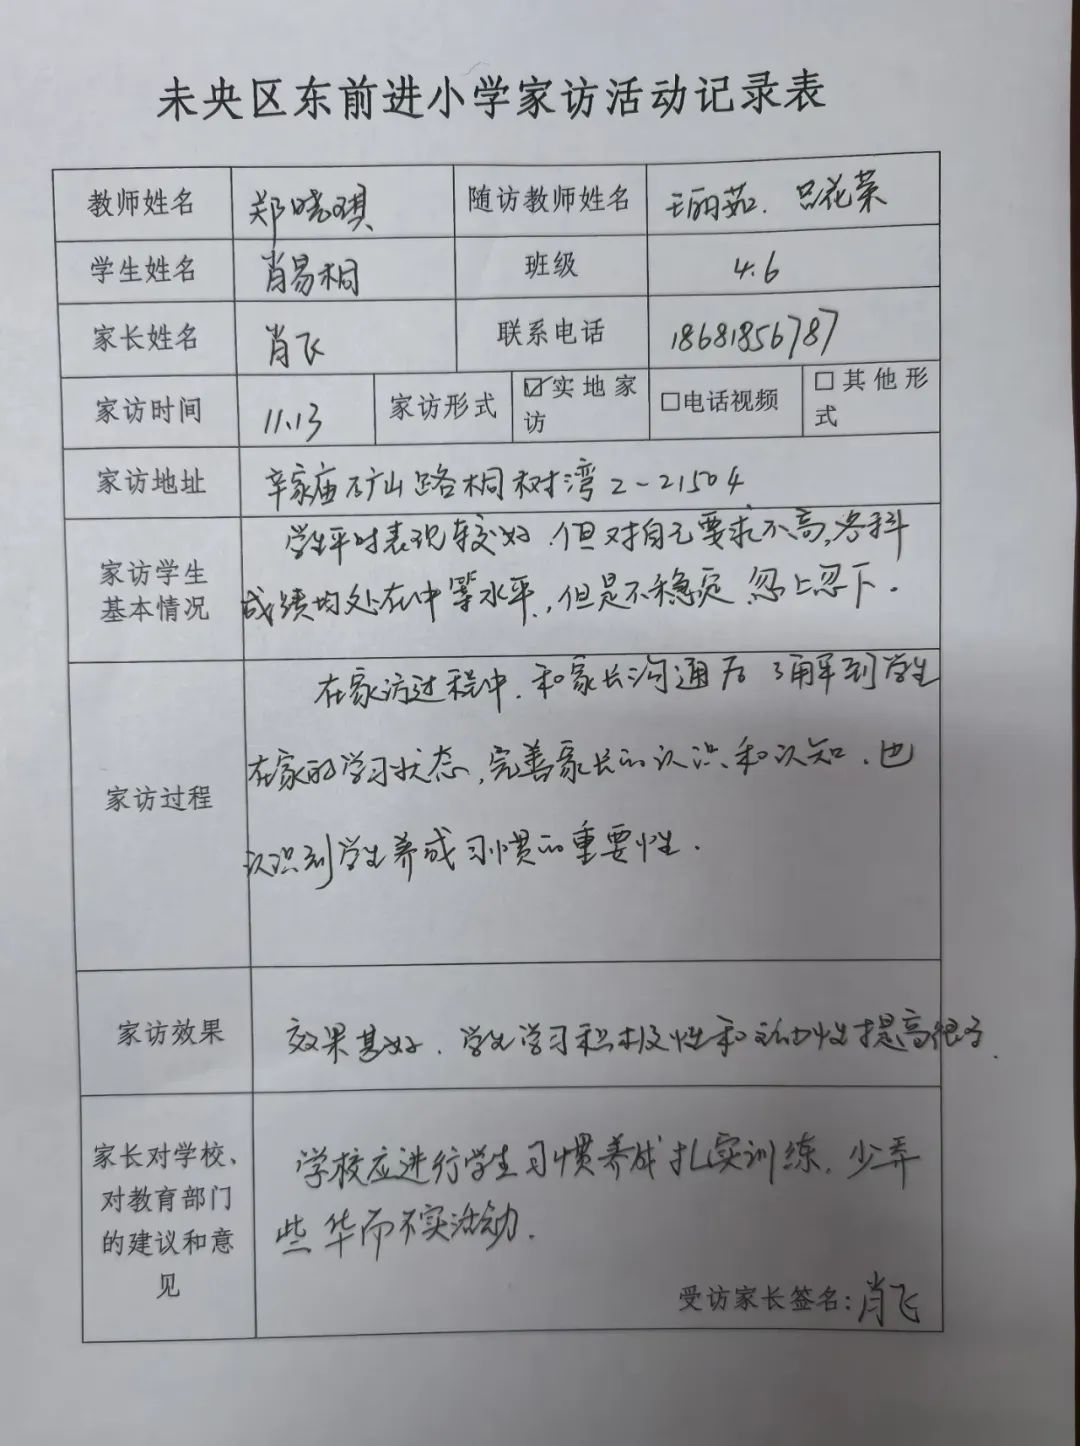 未央区东前进小学家访活动记录表
教师姓名 郑晓琪 随访教师姓名 王丽茹、吕花荣
学生姓名 肖易桐 班级 4.6
家长姓名 肖飞 联系电话 18681856787
家访时间 11.13 家访形式 ☑实地家访 □电话视频 □其他形式
家访地址 辛家庙矿山路桐树湾2-21504
家访学生基本情况
学生平时表现较好,但对自己要求不高,各科
成绩均处在中等水平,但是不稳定,忽上忽下.
家访过程
在家访过程中,和家长沟通后了解到学生
在家的学习状态,完善家长的认识和认知,也
认识到学生养成习惯的重要性.
家访效果
效果甚好,学生学习积极性和主动性提高很多.
家长对学校、
对教育部门
的建议和意
见
学校应进行学生习惯养成扎实训练,少弄
些华而不实活动.
受访家长签名:肖飞